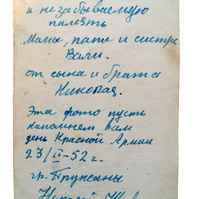 и незабываемую
память
Мама, папе и сестре
Вали.
от сына и брата
Николая.
Эта фото пусть
напомнем вам
день Красной Армии
23/II-52 г.
гр. Пружаны